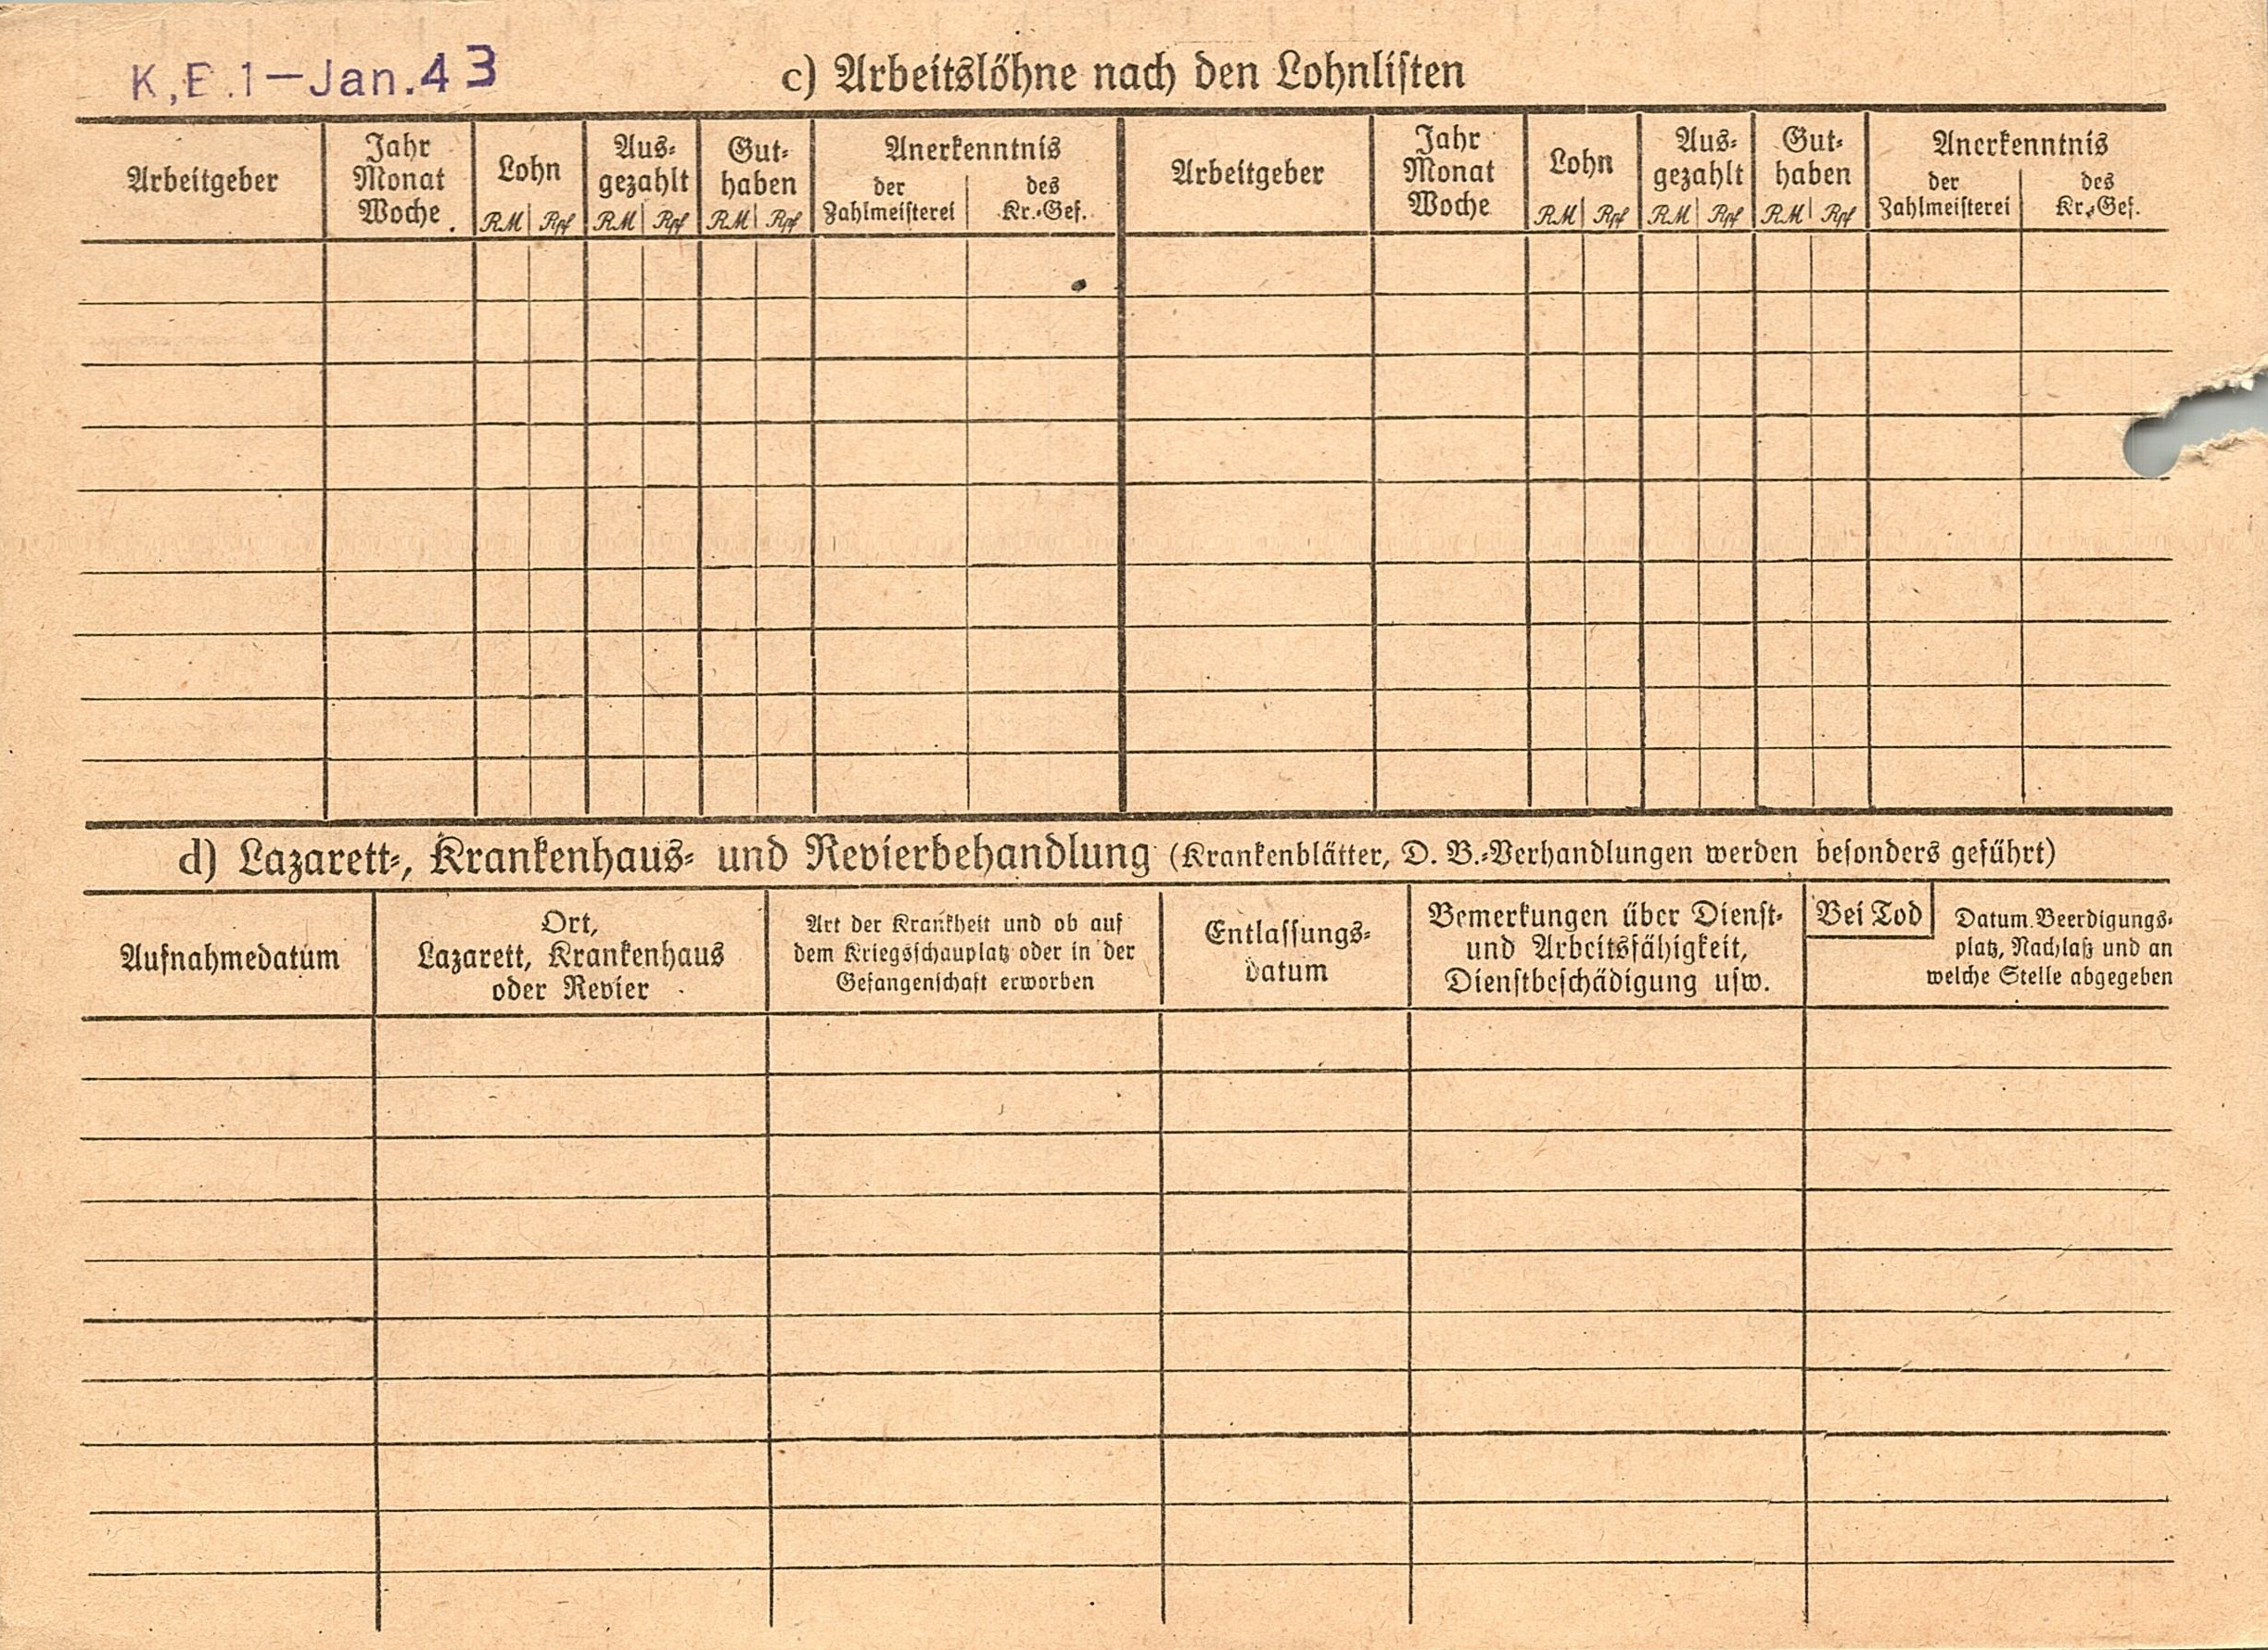 K.E.1—Jan.43
c) Arbeitslöhne nach den Lohnlisten
Arbeitgeber
Jahr
Monat
Woche
Lohn
RM Rpf
Aus-
gezahlt
RM Rpf
Gut-
haben
RM Rpf
Anerkenntnis
der
Zahlmeisterei
des
Kr.-Gef.
Arbeitgeber
Jahr
Monat
Woche
Lohn
RM Rpf
Aus-
gezahlt
RM Rpf
Gut-
haben
RM Rpf
Anerkenntnis
der
Zahlmeisterei
des
Kr.-Gef.
d) Lazarett-, Krankenhaus- und Revierbehandlung (Krankenblätter, D. B.-Verhandlungen werden besonders geführt)
Aufnahmedatum
Ort,
Lazarett, Krankenhaus
oder Revier
Art der Krankheit und ob auf
dem Kriegsschauplatz oder in der
Gefangenschaft erworben
Entlassungs-
datum
Bemerkungen über Dienst-
und Arbeitsfähigkeit,
Dienstbeschädigung usw.
Bei Tod
Datum, Beerdigungs-
platz, Nachlaß und an
welche Stelle abgegeben